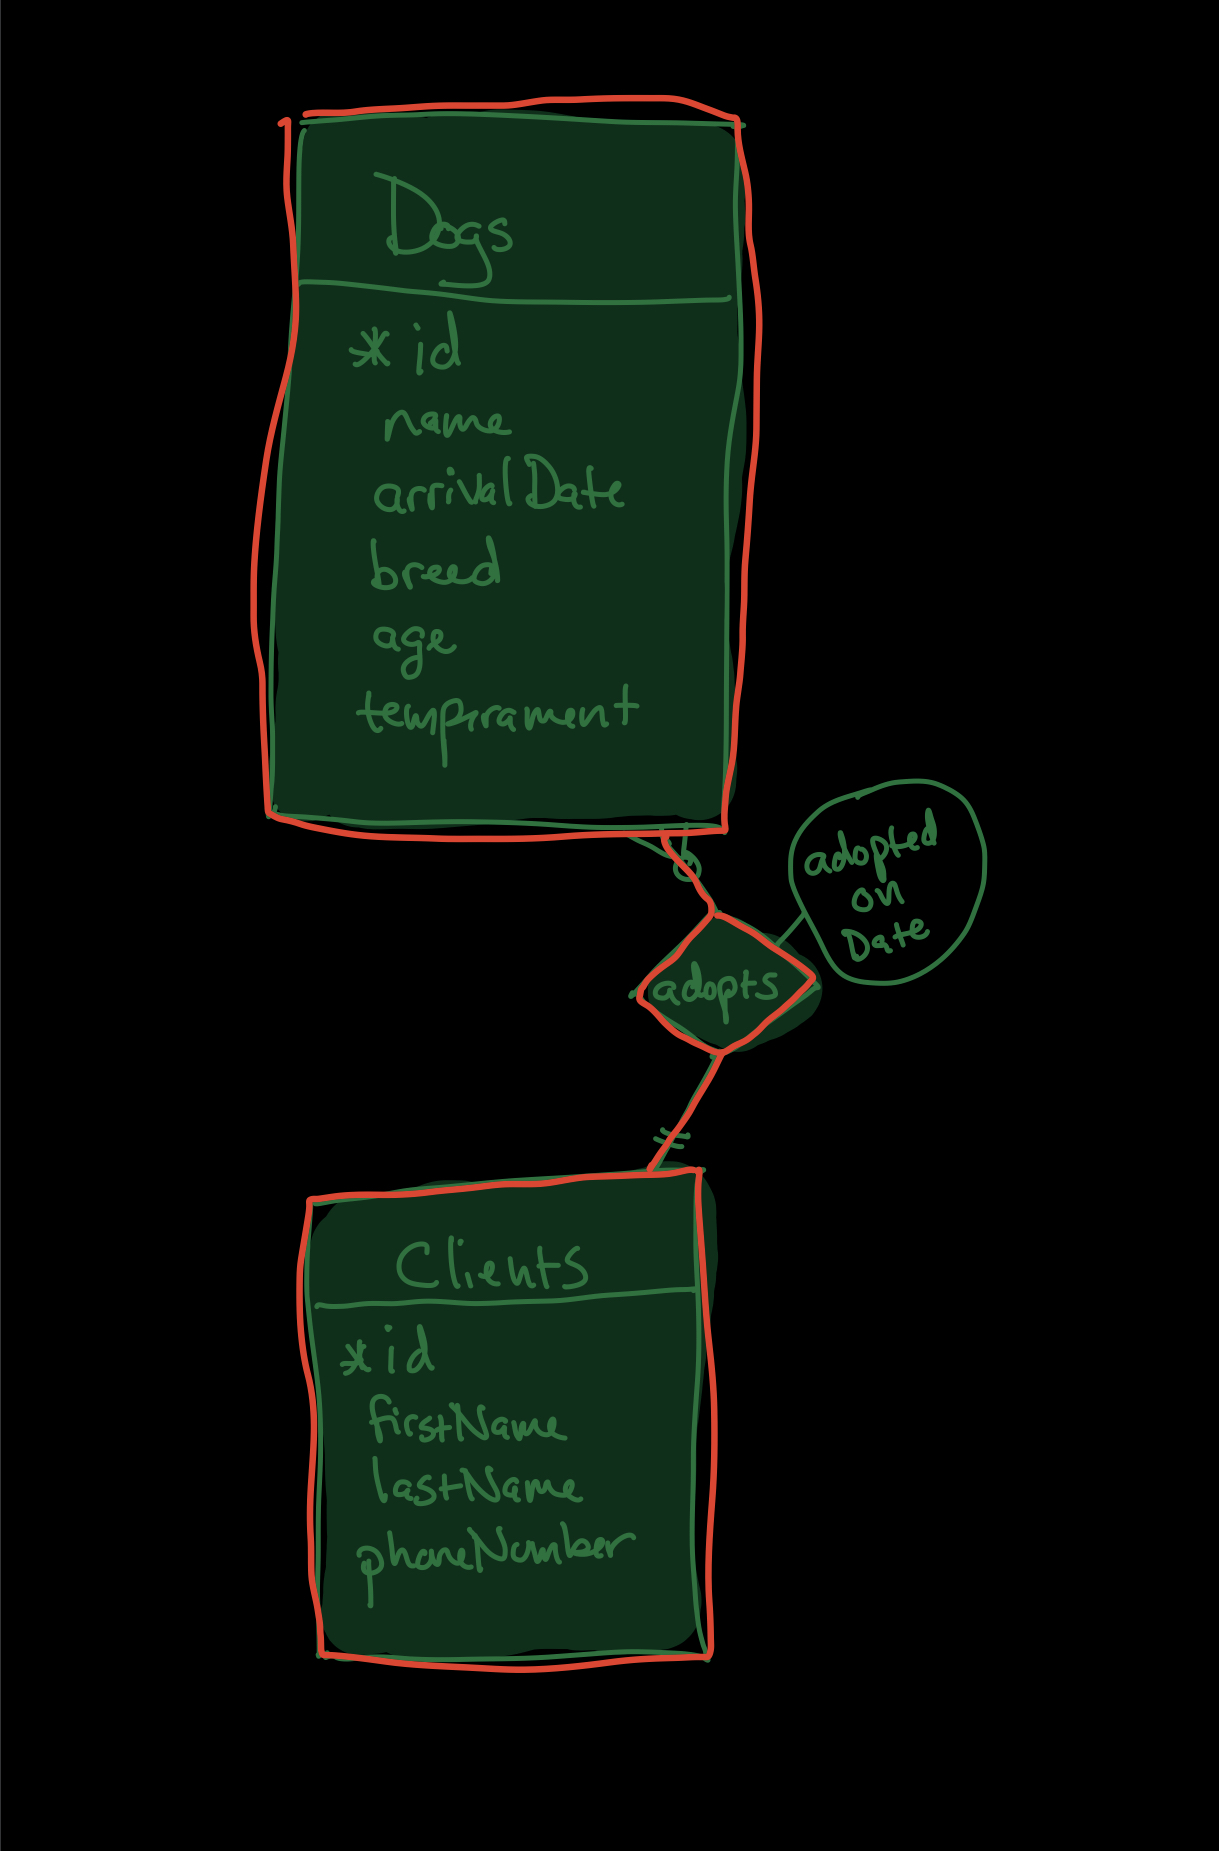 Dogs
* id
name
arrivalDate
breed
age
temprament
adopted
on
Date
adopts
Clients
* id
firstName
lastName
phoneNumber